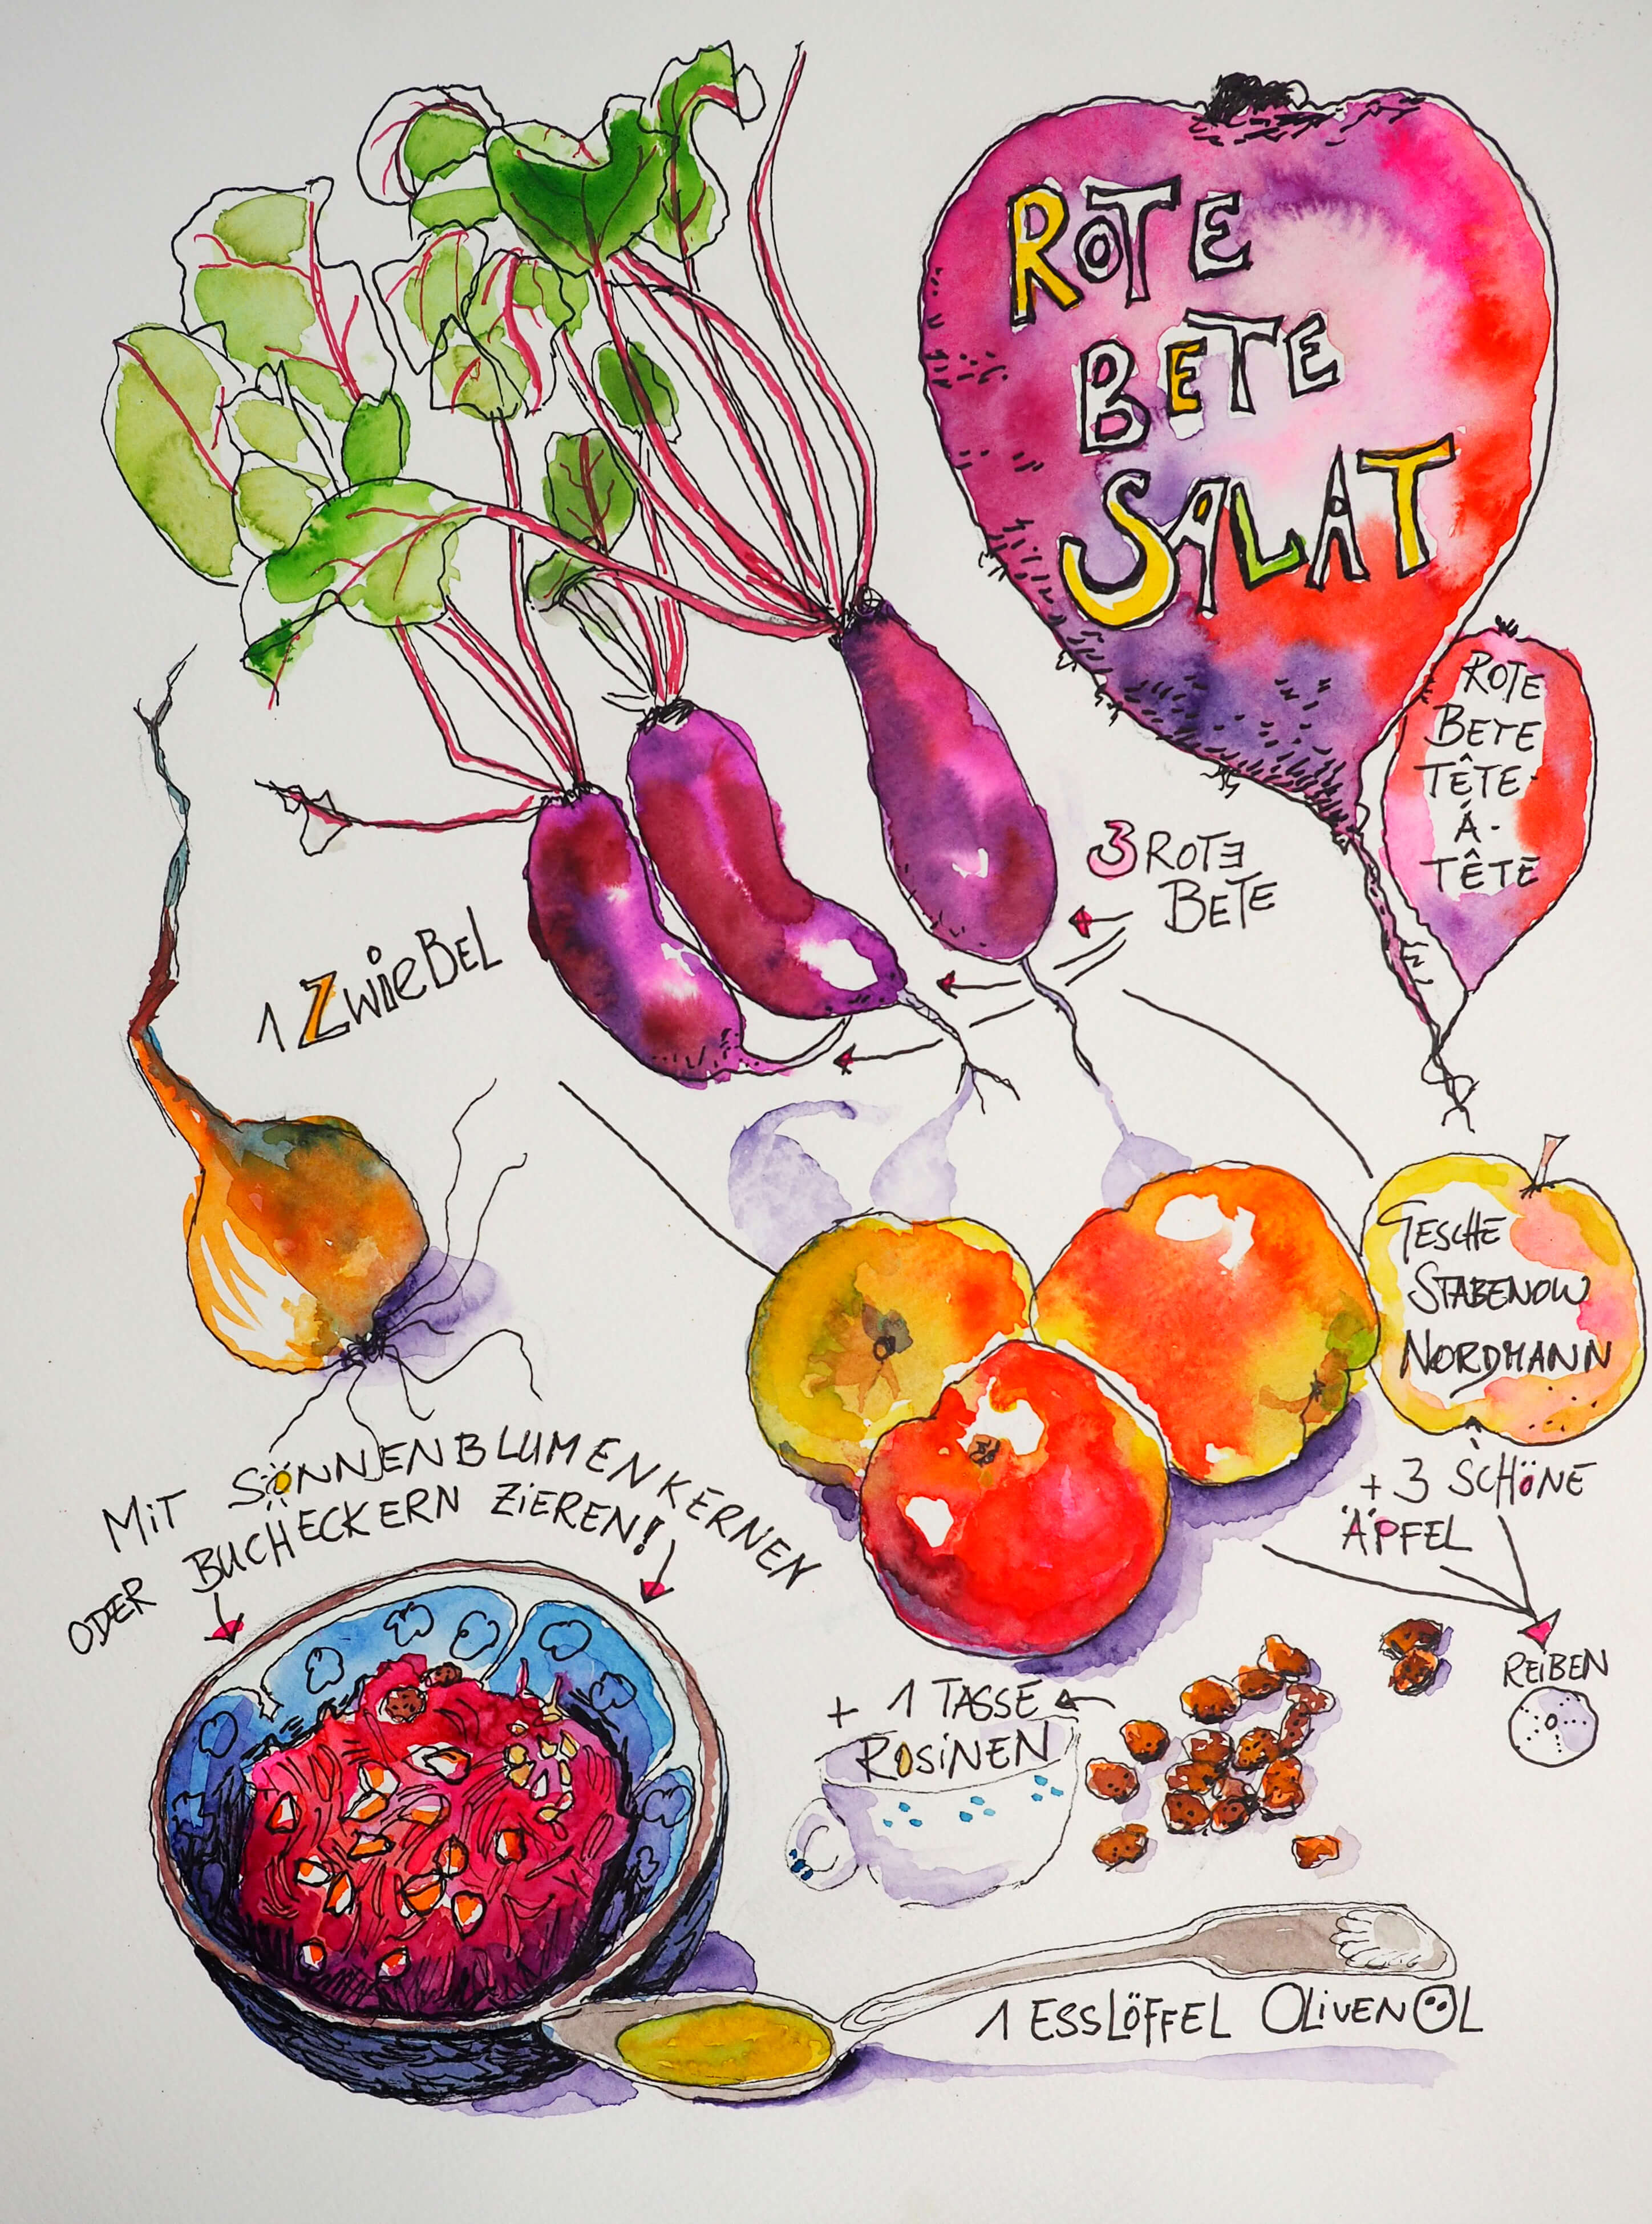 ROTE
BETE
SALAT
ROTE
BETE
TÊTE-
Á-
TÊTE
3 ROTE
BETE
1 ZWIEBEL
GESCHE
STABENOW
NORDMANN
+ 3 SCHÖNE
ÄPFEL
REIBEN
MIT SONNENBLUMENKERNEN
ODER BUCHECKERN ZIEREN!
+ 1 TASSE
ROSINEN
1 ESSLÖFFEL OLIVENÖL